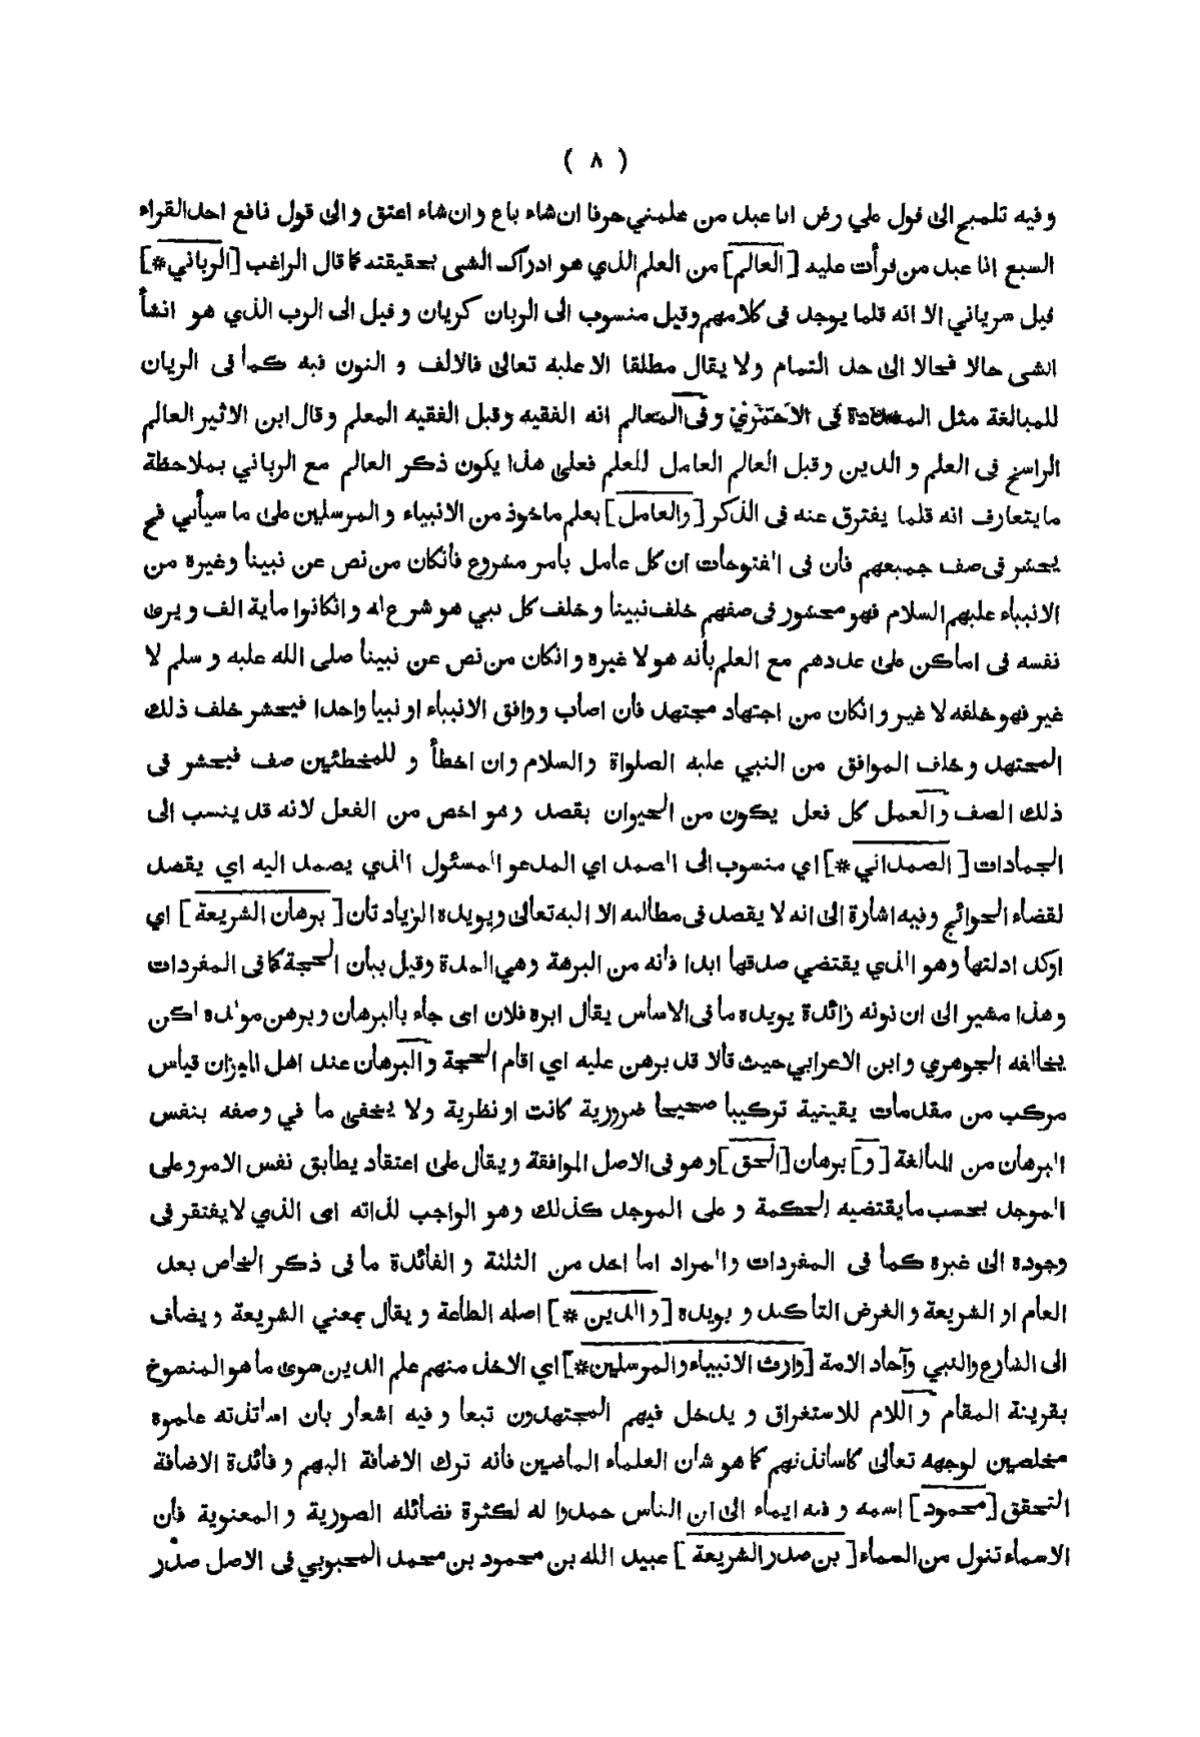 ( ٨ )
وفيه تلميح الى قول علي رض انا عبد من علمني حرفا ان شاء باع وان شاء اعتق والى قول نافع احد القراء
السبع انا عبد من قرأت عليه [العالم] من العلم الذي هو ادراك الشى بحقيقته كما قال الراغب [الرباني*]
قيل سرياني الا انه قلما يوجد فى كلامهم وقيل منسوب الى الربان كريان وقيل الى الرب الذي هو انشأ
الشى حالا فحالا الى حد التمام ولا يقال مطلقا الا عليه تعالى فالالف و النون فيه كما فى الريان
للمبالغة مثل فى وفى المعالم انه الفقيه وقيل الفقيه المعلم وقال ابن الاثير العالم
الراسخ فى العلم و الدين وقيل العالم العامل للعلم فعلى هذا يكون ذكر العالم مع الرباني بملاحظة
ما يتعارف انه قلما يفترق عنه فى الذكر [والعامل] بعلم ماخوذ من الانبياء و المرسلين على ما سيأتي فح
يحشر فى صف جميعهم فأن فى الفتوحات ان كل عامل بأمر مشروع فانكان من نص عن نبينا وغيره من
الانبياء عليهم السلام فهو محشور فى صفهم خلف نبينا وخلف كل نبي هو شرع له وانكانوا ماية الف ويرى
نفسه فى اماكن على عددهم مع العلم بأنه هو لا غيره وانكان من نص عن نبينا صلى الله عليه و سلم لا
غير فهو خلفه لا غير وانكان من اجتهاد مجتهد فأن اصاب ووافق الانبياء او نبيا واحدا فيحشر خلف ذلك
المجتهد وخلف الموافق من النبي عليه الصلواة والسلام وان اخطأ و للمخطئين صف فيحشر فى
ذلك الصف والعمل كل فعل يكون من الحيوان بقصد وهو اخص من الفعل لانه قد ينسب الى
الجمادات [الصمداني*] اي منسوب الى الصمد اي المدعو المسئول الذي يصمد اليه اي يقصد
لقضاء الحوائج وفيه اشارة الى انه لا يقصد فى مطالبه الا اليه تعالى ويويده الزياد تان [برهان الشريعة] اي
اوكد ادلتها وهو الذي يقتضي صدقها ابدا فأنه من البرهة وهي المدة وقيل بيان الحجة كما فى المفردات
وهذا مشير الى ان نونه زائدة يويده ما فى الاساس يقال ابره فلان اى جاء بالبرهان وبرهن مولده لكن
يخالفه الجوهري وابن الاعرابي حيث قالا قد برهن عليه اي اقام الحجة والبرهان عند اهل الميزان قياس
مركب من مقدمات يقينية تركيبا صحيحا ضرورية كانت او نظرية ولا يخفى ما في وصفه بنفس
البرهان من المبالغة [و] برهان [الحق] وهو فى الاصل الموافقة ويقال على اعتقاد يطابق نفس الامر وعلى
الموجد بحسب ما يقتضيه الحكمة و على الموجد كذلك وهو الواجب لذاته اى الذي لا يفتقر فى
وجوده الى غيره كما فى المفردات والمراد اما احد من الثلثة و الفائدة ما فى ذكر الخاص بعد
العام او الشريعة و الغرض التأكيد و يويده [والدين*] اصله الطاعة و يقال بمعني الشريعة و يضاف
الى الشارع والنبي وآحاد الامة [وارث الانبياء والمرسلين*] اي الاخذ منهم علم الدين سوى ما هو المنسوخ
بقرينة المقام واللام للاستغراق و يدخل فيهم المجتهدون تبعا وفيه اشعار بان اساتذته علموه
مخلصين لوجهه تعالى كاساتذتهم كما هو شأن العلماء الماضين فأنه ترك الاضافة اليهم و فائدة الاضافة
التحقق [محمود] اسمه و فيه ايماء الى ان الناس حمدوا له لكثرة فضائله الصورية و المعنوية فأن
الاسماء تنزل من السماء [بن صدر الشريعة] عبيد الله بن محمود بن محمد المحبوبي فى الاصل صدر